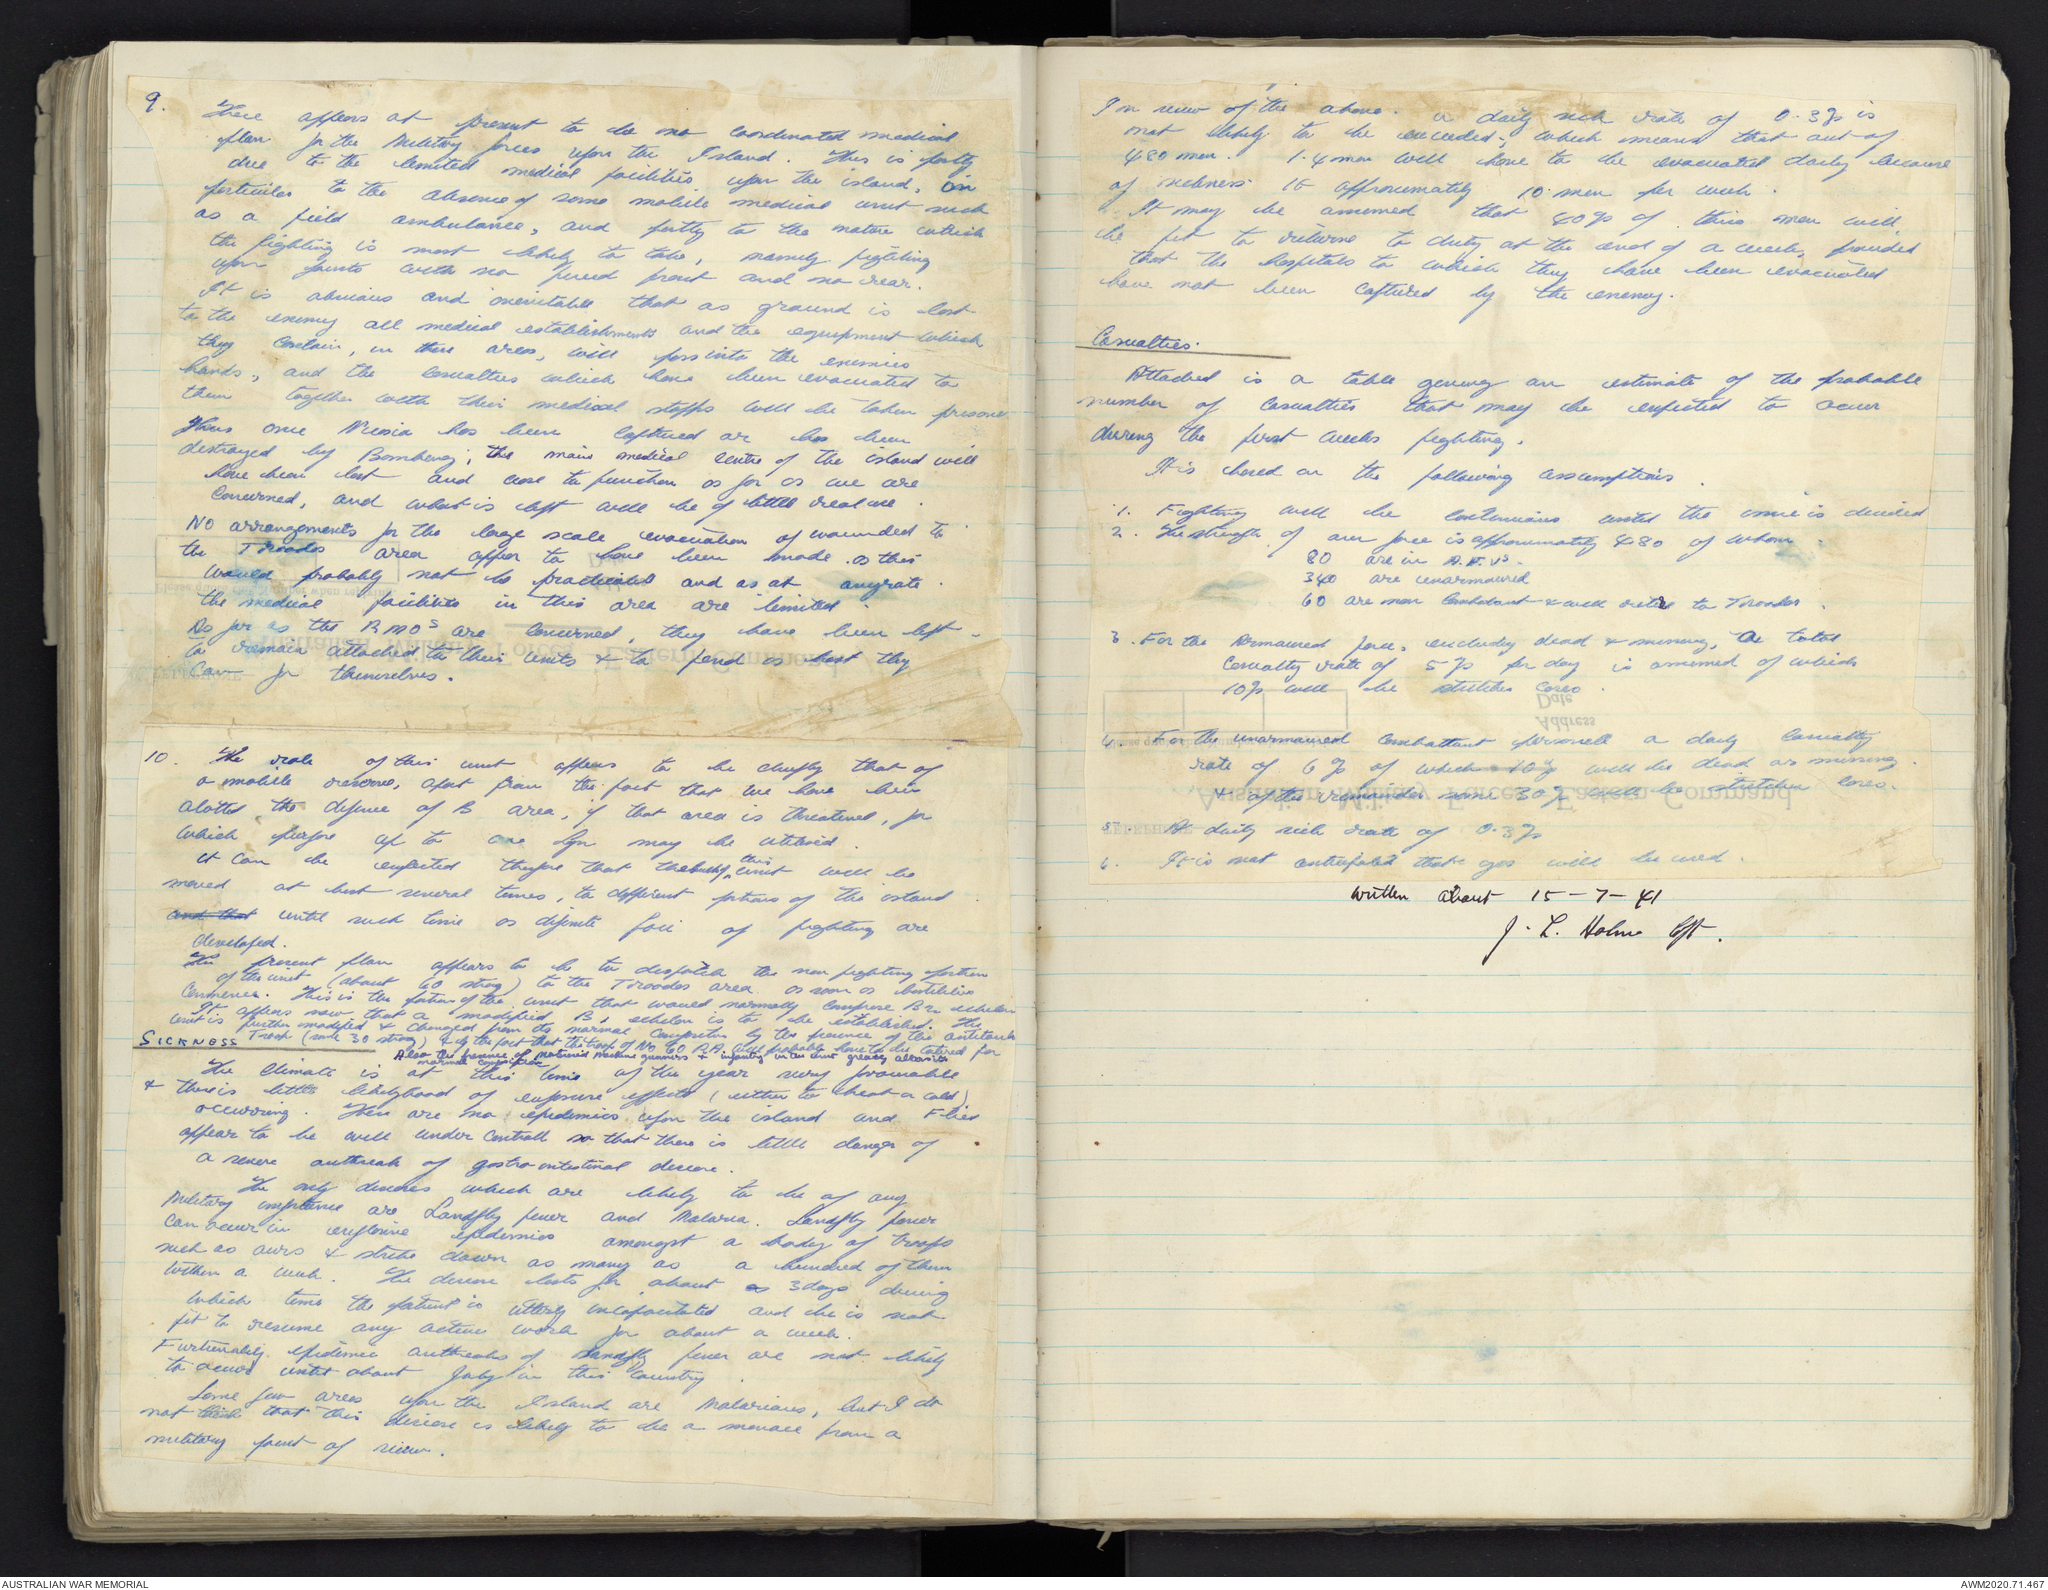 9. There appears at present to be no coordinated medical
plan for the Military forces upon the Island. This is partly
due to the limited medical facilities upon the island, in
particular to the absence of some mobile medical unit such
as a field ambulance, and partly to the nature which
the fighting is most likely to take, namely fighting
upon fronts with no fixed front and no rear.
It is obvious and inevitable that as ground is lost
to the enemy all medical establishments and the equipment which
they contain, in these areas, will pass into the enemies
hands, and the casualties which have been evacuated to
them together with their medical staffs will be taken prisoner
Thus once Nicosia has been captured or has been
destroyed by Bombing, the main medical centre of the island will
have been lost and cease to function as far as we are
concerned, and what is left will be of little real use.
No arrangements for the large scale evacuation of wounded to
the Troodos area appear to have been made as this
would probably not be practicable and as at anyrate
the medical facilities in this area are limited.
As far as the RMOs are concerned, they have been left
to remain attached to their units & to fend as best they
can for themselves.
10. The role of this unit appears to be chiefly that of
a mobile reserve, apart from the fact that we have been
alotted the defence of B area, if that area is threatened, for
which purpose up to one Sqn may be utilised.
It can be expected therefore that the bulk of this unit will be
moved at least several times, to different portions of the island
and that until such time as definite foci of fighting are
developed.
The present plan appears to be to despatch the non fighting portion
of the unit (about 60 strong) to the Troodos area as soon as hostilities
commence. This is the portion of the unit that would normally comprise B2 echelon
It appears now that a modified B1 echelon is to be established. The
unit is further modified & changed from its normal composition by the presence of the antitank
Troop (some 30 strong) & by the fact that the troop of No 60 R.A. will probably have to be catered for
Also the presence of motorised machine gunners & infantry in the unit greatly alters its
normal composition
SICKNESS
The climate is at this time of the year very favourable
& there is little likelyhood of exposure effects (either to heat or cold)
occurring. There are no epidemics upon the island and Flies
appear to be well under controll so that there is little danger of
a severe outbreak of gastro intestinal disease.
The only diseases which are likely to be of any
Military importance are Sandfly fever and Malaria. Sandfly fever
can occur in explosive epidemics amongst a body of troops
such as ours & strike down as many as a hundred of them
within a week. The disease lasts for about 3 days during
which time the patient is utterly incapacitated and he is not
fit to resume any active work for about a week.
Furtunately epidemic outbreaks of sandfly fever are not likely
to occur until about July in this country.
Some few areas upon the Island are Malarious, but I do
not think that this disease is likely to be a menace from a
military point of view.
In view of the above a daily sick rate of 0.3% is
not likely to be exceeded; which means that out of
480 men. 1.4 men will have to be evacuated daily because
of sickness IE approximately 10 men per week.
It may be assumed that 40% of this men will
be fit to returne to duty at the end of a week, provided
that the hospitals to which they have been evacuated
have not been captured by the enemy.
Casualties.
Attached is a table giving an estimate of the probable
number of casualties that may be expected to occur
during the first weeks fighting.
It is based on the following assumptions.
1. Fighting will be continuous until the issue is decided
2. The strength of our force is approximately 480 of whom:
80 are in A.F.Vs.
340 are unarmoured
60 are non combatant & will retire to Troodos.
3. For the Armoured force, excluding dead & missing, a total
casualty rate of 5% per day is assumed of which
10% will be stretcher cases.
4. For the unarmoured combattant personell a daily casualty
rate of 6% of which 10% will be dead or missing
& of the remainder some 30% will be stretcher cases.
5. A daily sick rate of 0.3%
6. It is not anticipated that gas will be used.
written about 15-7-41
J. L. Holme Cpt.
Date
Address
Australian Military Forces Eastern Command
AUSTRALIAN WAR MEMORIAL
AWM2020.71.467